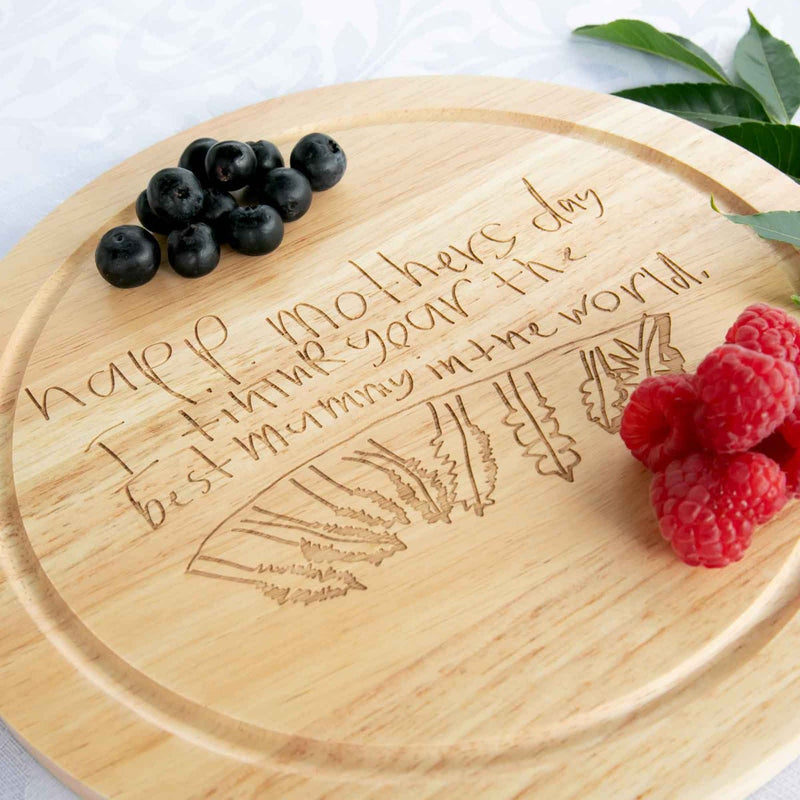 happ. mothers day
I tihink your the
best mummy in the world.